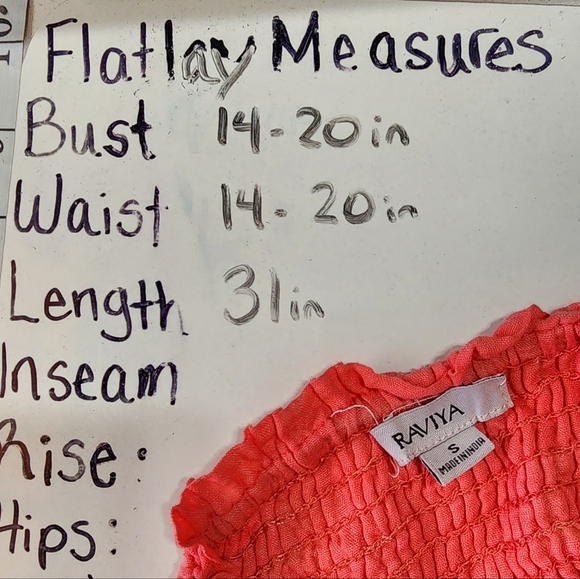 Flatlay Measures
Bust 14-20in
Waist 14-20in
Length 31in
Inseam
Rise:
Hips:
RAVIYA
S
MADE IN INDIA